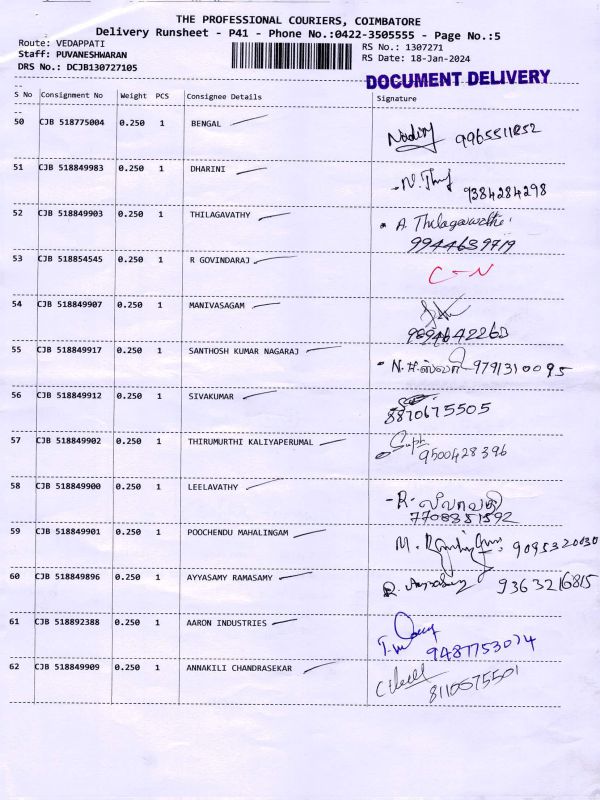 THE PROFESSIONAL COURIERS, COIMBATORE
Delivery Runsheet - P41 - Phone No.:0422-3505555 - Page No.:5
Route: VEDAPPATI
Staff: PUVANESHWARAN
DRS No.: DCJB130727105
RS No.: 1307271
RS Date: 18-Jan-2024
DOCUMENT DELIVERY
S No Consignment No Weight PCS Consignee Details Signature
50 CJB 518775004 0.250 1 BENGAL
51 CJB 518849983 0.250 1 DHARINI
9384284298
52 CJB 518849903 0.250 1 THILAGAVATHY A. Thilagavathi
9944639719
53 CJB 518854545 0.250 1 R GOVINDARAJ C-N
54 CJB 518849907 0.250 1 MANIVASAGAM
55 CJB 518849917 0.250 1 SANTHOSH KUMAR NAGARAJ 9791310095
56 CJB 518849912 0.250 1 SIVAKUMAR
8870675505
57 CJB 518849902 0.250 1 THIRUMURTHI KALIYAPERUMAL
9500428396
58 CJB 518849900 0.250 1 LEELAVATHY R. லீலாவதி
7708351592
59 CJB 518849901 0.250 1 POOCHENDU MAHALINGAM 9095320030
60 CJB 518849896 0.250 1 AYYASAMY RAMASAMY 9363216815
61 CJB 518892388 0.250 1 AARON INDUSTRIES
9487753074
62 CJB 518849909 0.250 1 ANNAKILI CHANDRASEKAR
8110575501